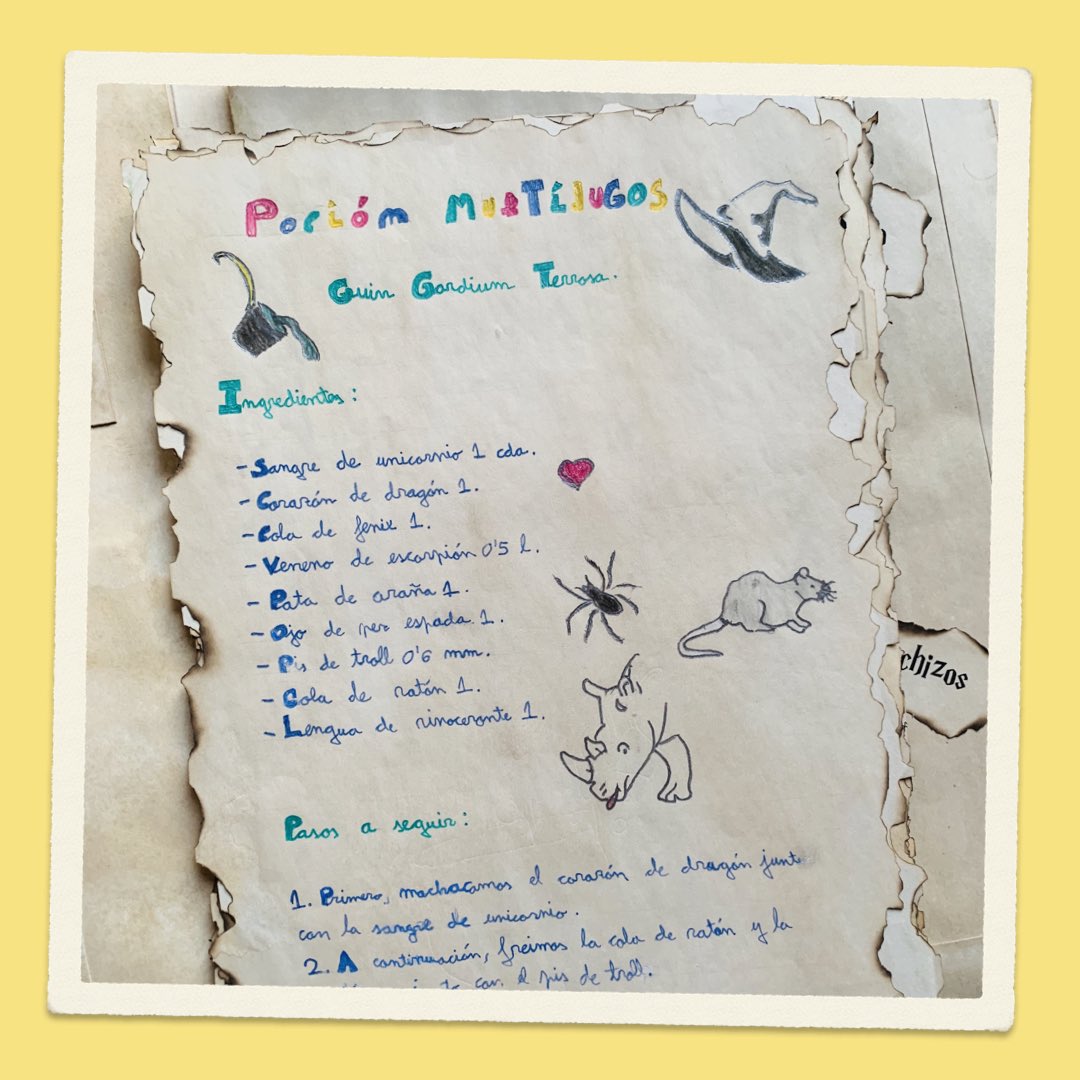 Poción MULTÍJUGOS
Guin Gardium Terrosa.
Ingredientes:
- Sangre de unicornio 1 cda.
- Corazón de dragón 1.
- Cola de fenix 1.
- Veneno de escorpión 0'5 l.
- Pata de araña 1.
- Ojo de pez espada 1.
- Pis de troll 0'6 mm.
- Cola de ratón 1.
- Lengua de rinoceronte 1.
chizos
Pasos a seguir:
1. Primero, machacamos el corazón de dragón junt
con la sangre de unicornio.
2. A continuación, freimos la cola de ratón y la
con el pis de troll.